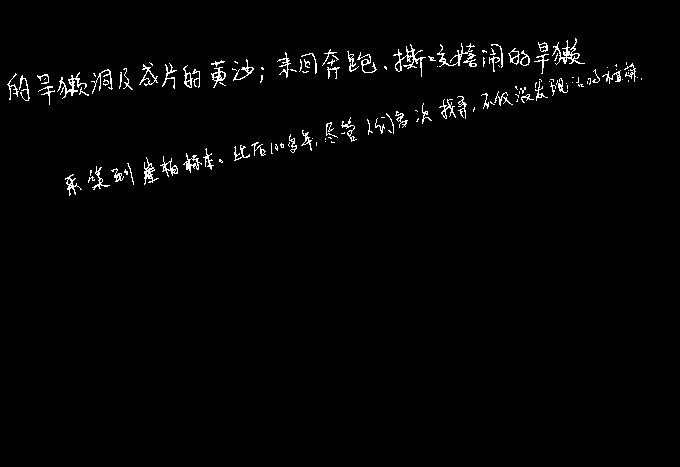 的旱獭洞及成片的黄沙；来回奔跑、撕咬嬉闹的旱獭
采集到崖柏标本。此后100多年，尽管人们多次找寻，不仅没发现活的植株，